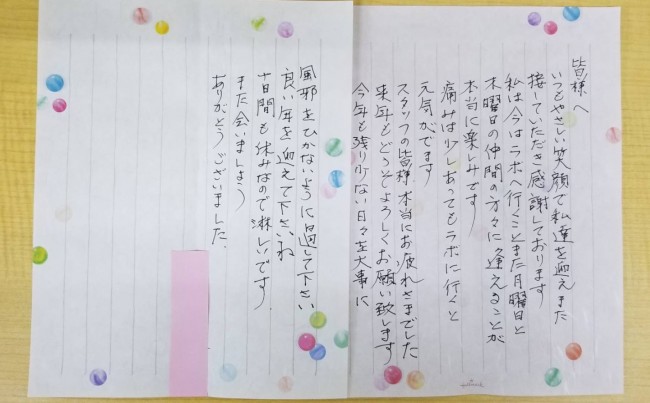 皆様へ
いつもやさしい笑顔で私達を迎えまた
接していただき感謝しております
私は今はラボへ行くことまた月曜日と
木曜日の仲間の方々に逢えることが
本当に楽しみです
痛みは少しあってもラボに行くと
元気がでます
スタッフの皆様本当にお疲れさまでした
来年もどうぞよろしくお願い致します
今年も残り少ない日々を大事に
風邪をひかないように過して下さい
良い年を迎えて下さいね
十日間も休みなので淋しいです
また会いましょう
ありがとうございました.